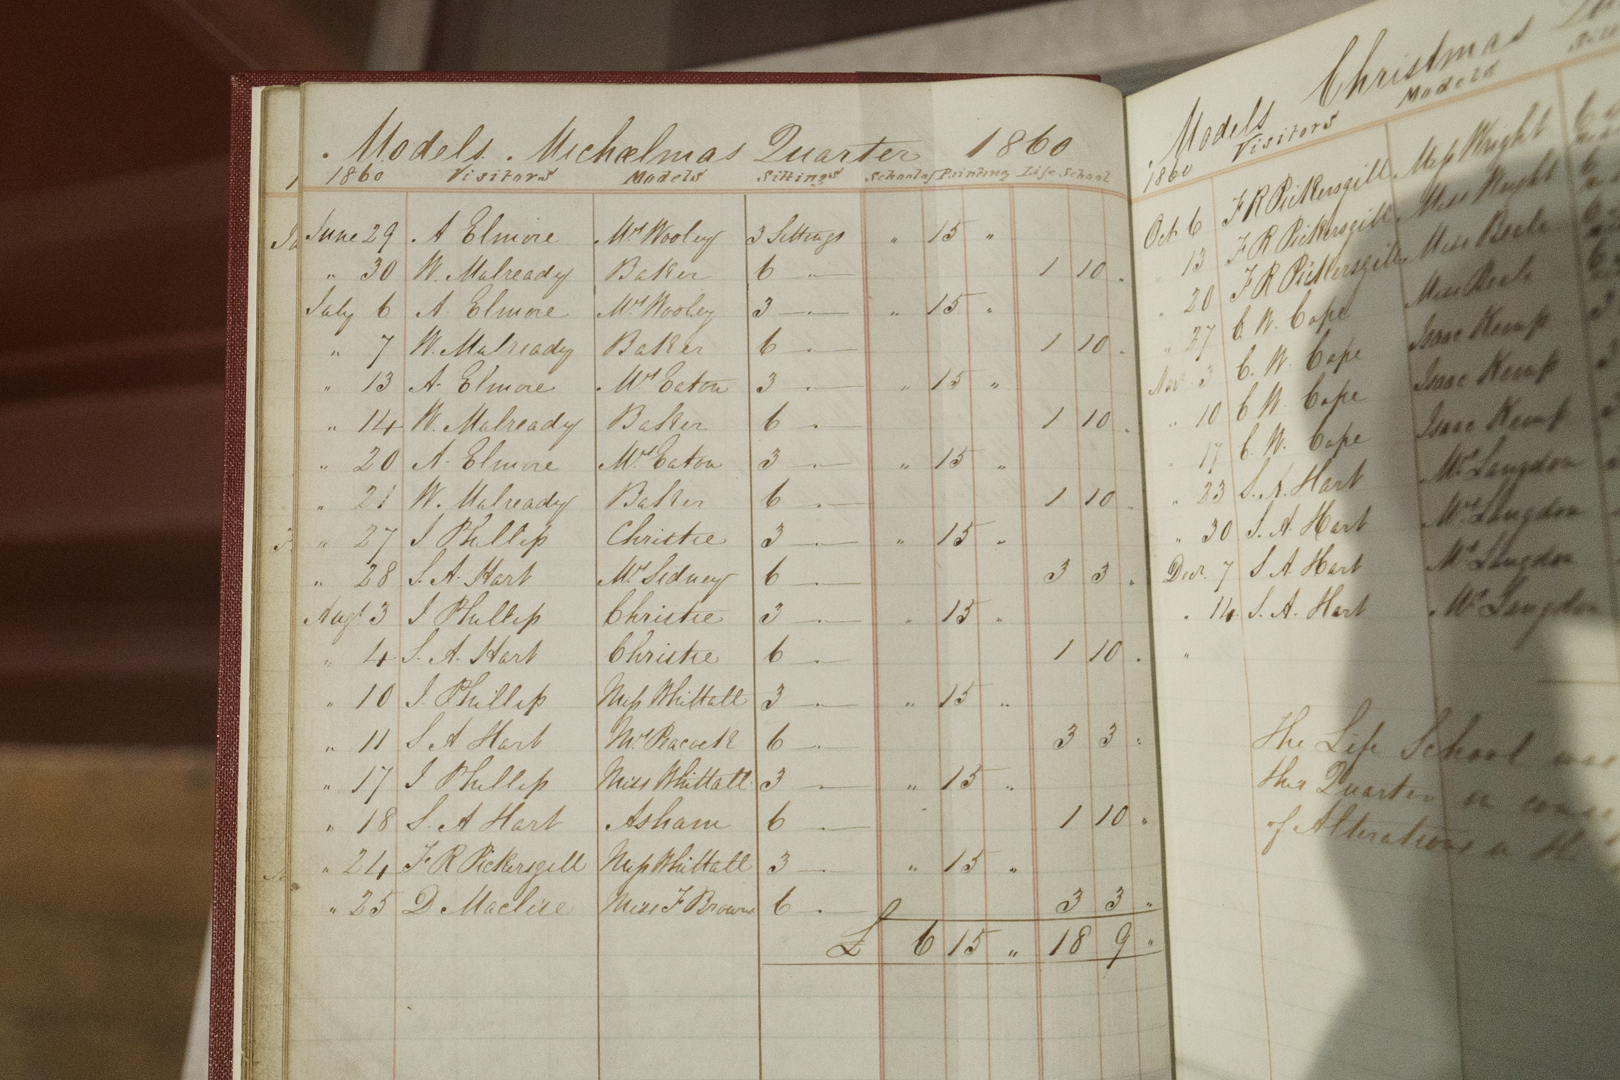 Models. Michælmas Quarter 1860
1860 Visitors Models Sittings School of Painting Life School
June 29 A Elmore Mrs Wooley 3 Sittings " 15 "
" 30 W. Mulready Baker 6 " 1 10 "
July 6 A. Elmore Mrs Wooley 3 " 15 "
" 7 W. Mulready Baker 6 1 10 "
" 13 A. Elmore Mrs Eaton 3 " 15 "
" 14 W. Mulready Baker 6 1 10 "
" 20 A. Elmore Mrs Eaton 3 " 15 "
" 21 W. Mulready Baker 6 1 10 "
" 27 J Phillip Christie 3 " 15 "
" 28 S. A. Hart Mrs Sidney 6 3 3 "
Augt 3 J Phillip Christie 3 " 15 "
" 4 S. A. Hart Christie 6 1 10 "
" 10 J. Phillip Miss Whittall 3 " 15 "
" 11 S A Hart Mrs Peacock 6 3 3 "
" 17 J Phillip Miss Whittall 3 " 15 "
" 18 S. A Hart Asham 6 1 10 "
" 24 F R Pickersgill Miss Whittall 3 " 15 "
" 25 D Maclise Miss F Brown 6 3 3 "
£ 6 15 " 18 9 "
Models Christmas
1860 Visitors Models
Oct 6 F R Pickersgill Miss Wright
" 13 F R Pickersgill Miss Wright
" 20 F R Pickersgill Miss Beale
" 27 C. W. Cope Miss Beale
Nov 3 C. W. Cope Isaac Kemp
" 10 C W. Cope Isaac Kemp
" 17 C. W. Cope Isaac Kemp
" 23 S. A. Hart Mrs Langdon
" 30 S. A Hart Mrs Langdon
Decr. 7 S A Hart Mrs Langdon
" 14 S. A. Hart Mrs Langdon
"
The Life School was
this Quarter in
of Alterations in